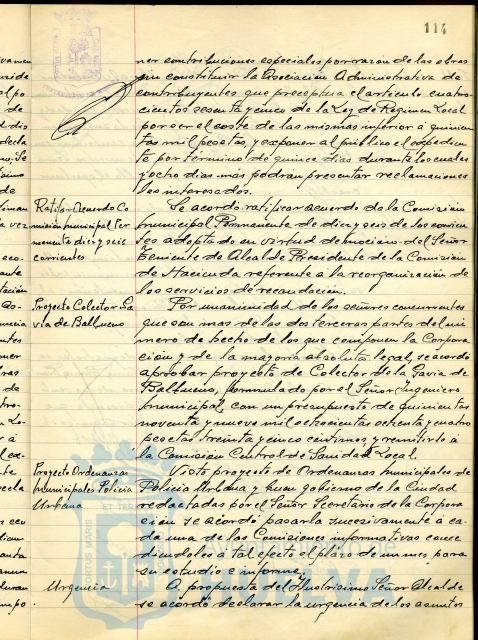 114
ner contribuciones especiales por razon de las obras
sin constituir la Asociacion Administrativa de
contribuyentes que preceptua el articulo cuatro-
cientos sesenta y cinco de la Ley de Regimen Local
por ser el coste de las mismas inferior á quinien
tas mil pesetas, y exponer al publico el expedien
te por término de quince dias durante los cuales
y ocho dias más podrán presentar reclamaciones
los interesados.
Ratificar Acuerdo Co
mision municipal Per
manente diez y seis
corrientes
Se acordó ratificar acuerdo de la Comisión
municipal Permanente de diez y seis de los corrien
tes adoptado en virtud de mocion del Señor
Teniente de Alcalde Presidente de la Comisión
de Hacienda referente a la reorganización de
los servicios de recaudación.
Proyecto Colector Ga
via de Balbueno
Por unanimidad de los señores concurrentes
que son mas de las dos terceras partes del nú
mero de hecho de los que componen la Corpora
ción y de la mayoria absoluta legal, se acordó
aprobar proyecto de Colector de la Gavia de
Balbueno, formulado por el Señor Ingeniero
municipal, con un presupuesto de quinientas
noventa y nueve mil ochocientas ochenta y cuatro
pesetas treinta y cinco centimos y remitirlo á
la Comisión Central de Sanidad Local.
Proyecto Ordenanzas
municipales Policia
Urbana
Visto proyecto de Ordenanzas municipales de
Policia Urbana y buen gobierno de la Ciudad
redactadas por el Señor Secretario de la Corpora
ción se acordó pasarla sucesivamente a ca
da una de las Comisiones informativas conce
diendoles a tal efecto el plazo de un mes para
su estudio e informe.
Urgencia
A propuesta del Ilustrisimo Señor Alcalde
se acordó declarar la urgencia de los asuntos